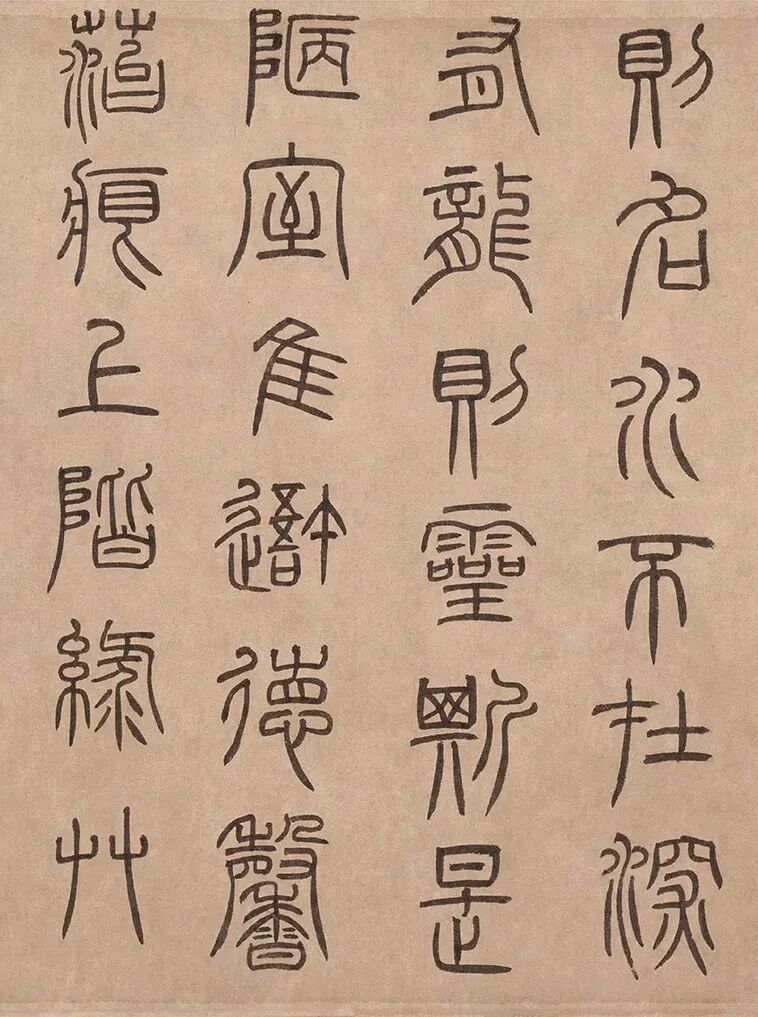 則名水不在深
有龍則靈斯是
陋室隹吾德馨
菭痕上階綠艸